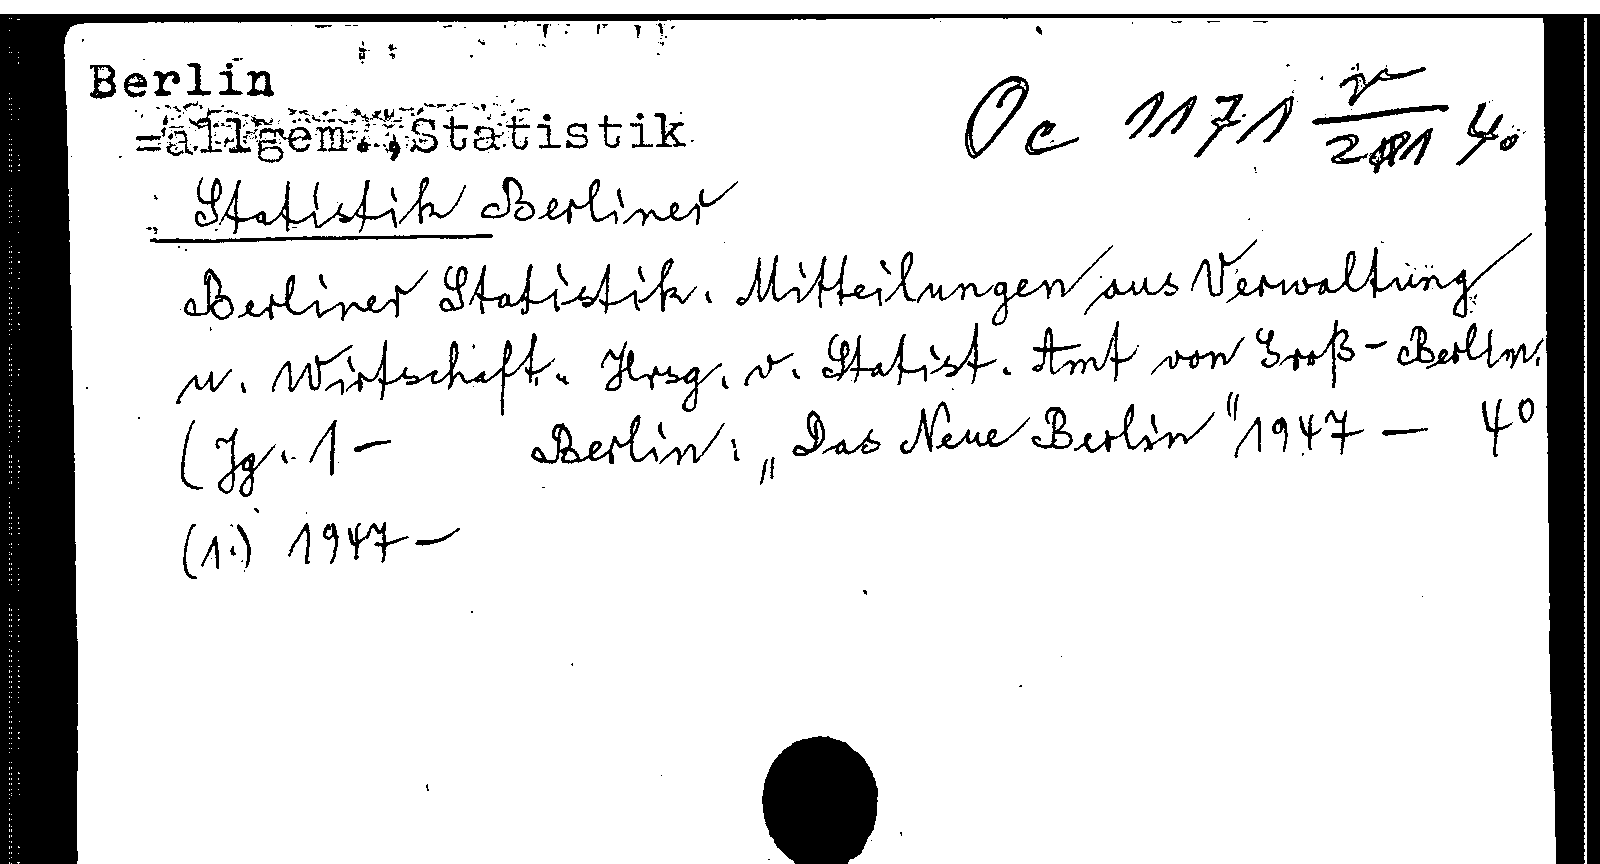 Berlin
=allgem.,Statistik
Oc 1171 4°
Statistik Berliner
Berliner Statistik. Mitteilungen aus Verwaltung
u. Wirtschaft. Hrsg. v. Statist. Amt von Groß-Berlin.
(Jg. 1- Berlin: „Das Neue Berlin" 1947 - 4°
(1.) 1947-